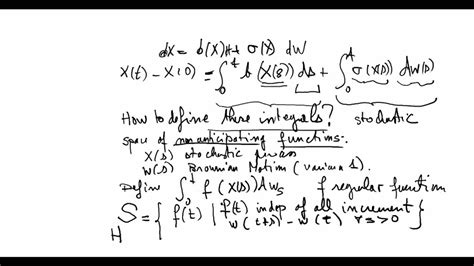 dX = b(X)dt + σ(X) dW
X(t) - X(0) = ∫₀ᵗ b(X(s)) ds + ∫₀ᵗ σ(X(s)) dW(s)
How to define these integrals? stochastic
space of nonanticipating functions.
X(s) stochastic process
W(s) Brownian Motion (variance s).
Define ∫₀ᵗ f(X(s)) dWs f regular function
S_H = { f(t) | f(t) indep of all increment W(t+s) - W(t) ∀s>0 }